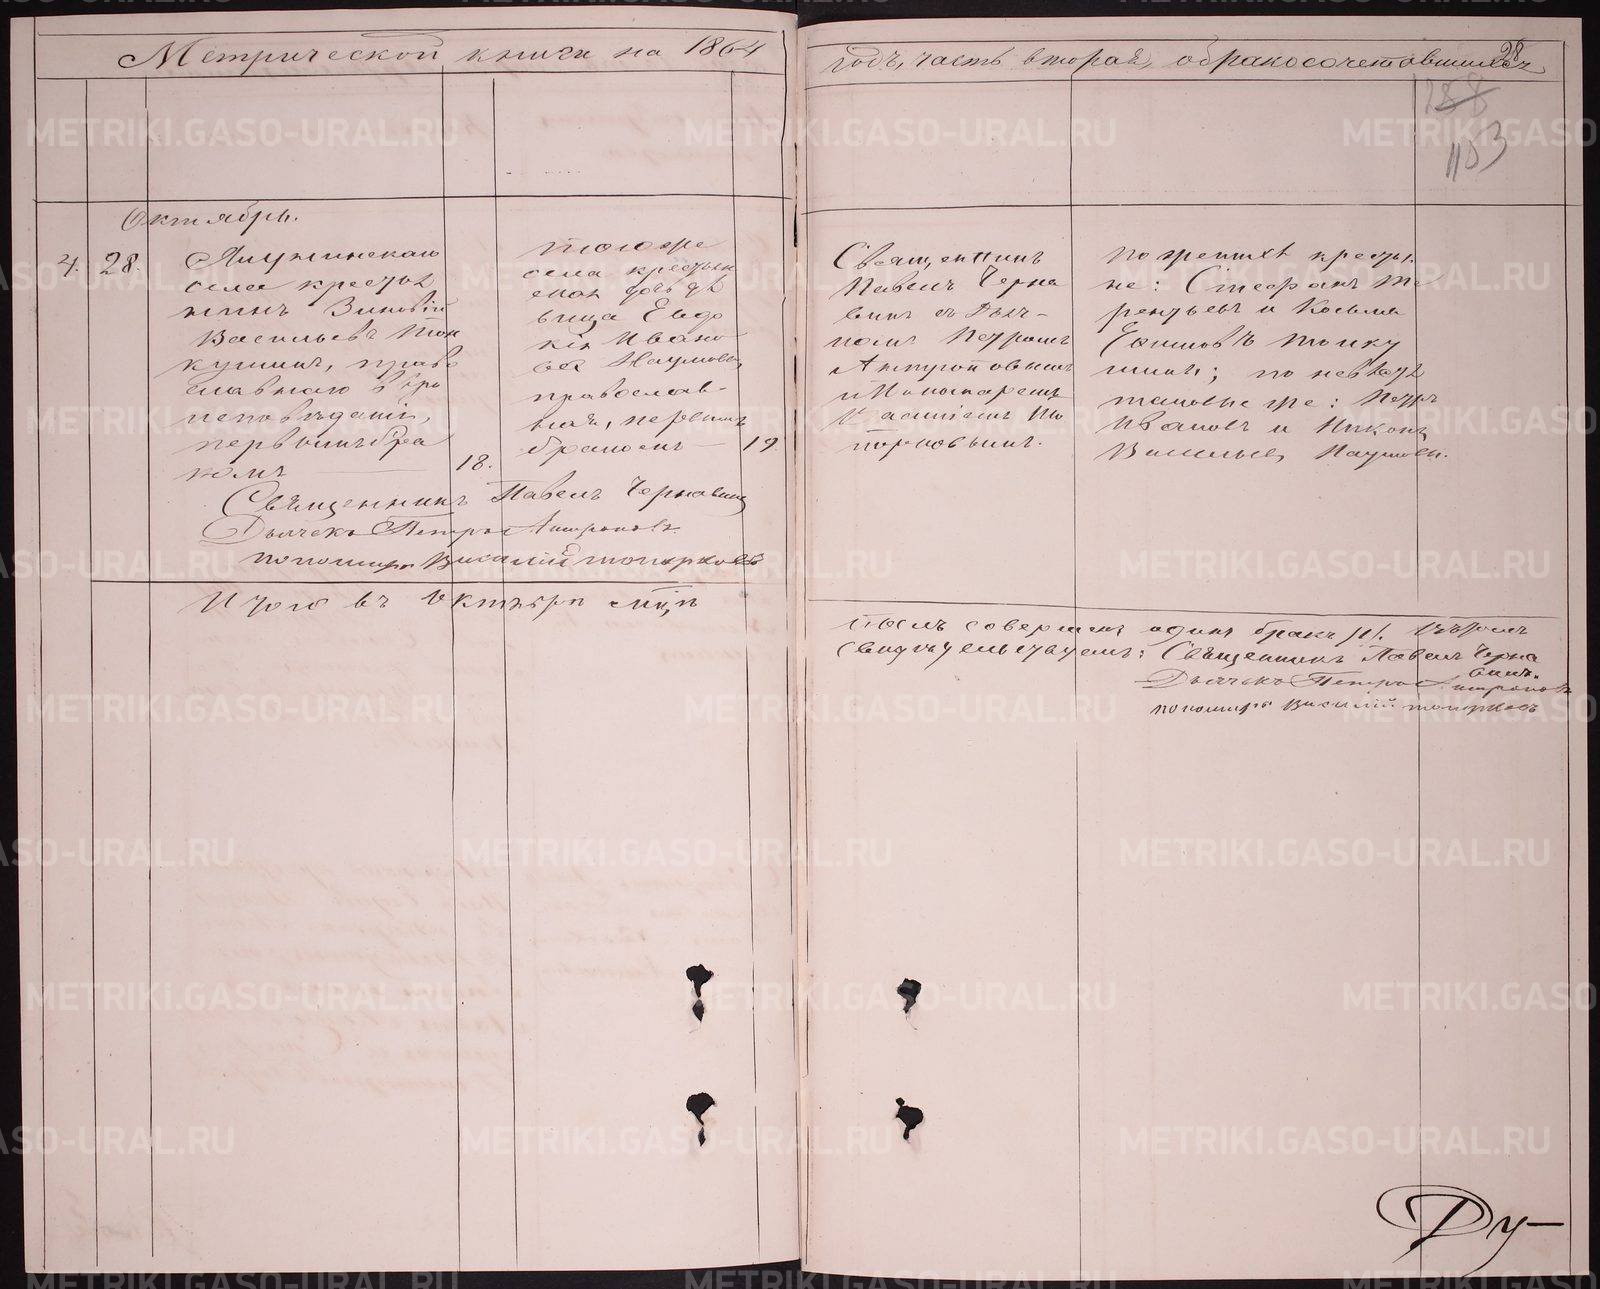 Метрической книги на 1864
годъ, часть вторая, о бракосочетавшихся
28
188
1153
Октябрь.
4. 28.
села крестья
нинъ Зиновій
Васильевъ Топ
кушинъ, право
славнаго вѣро
исповѣданія,
первымъ бра
комъ 18.
тогоже
села крестьян
ская дочь дѣ
вица Евдо
кія Ивано
ва Наумова,
православ-
ная, первымъ
бракомъ 19.
Священникъ
Павелъ Черна
винъ съ Дьяч-
комъ Петромъ
Антроповымъ
и Пономаремъ
Василіемъ То
порковымъ.
по женихѣ крестья
не: Стефанъ Те
рентьевъ и Косьма
Топку
шины; по невѣстѣ
таковые же: Петръ
Ивановъ и Никонъ
Васильевъ Наумовы.
Священникъ Павелъ Чернавинъ
Дьячекъ Петръ Антроповъ
пономарь Василій Топорковъ
Итого въ Октябрѣ мцѣ
былъ совершенъ одинъ бракъ /1/. Въ томъ
свидѣтельствуемъ: Священникъ Павелъ Черна
винъ.
Дьячекъ Петръ Антроповъ
пономарь Василій Топорковъ
Ду-
METRIKI.GASO-URAL.RU